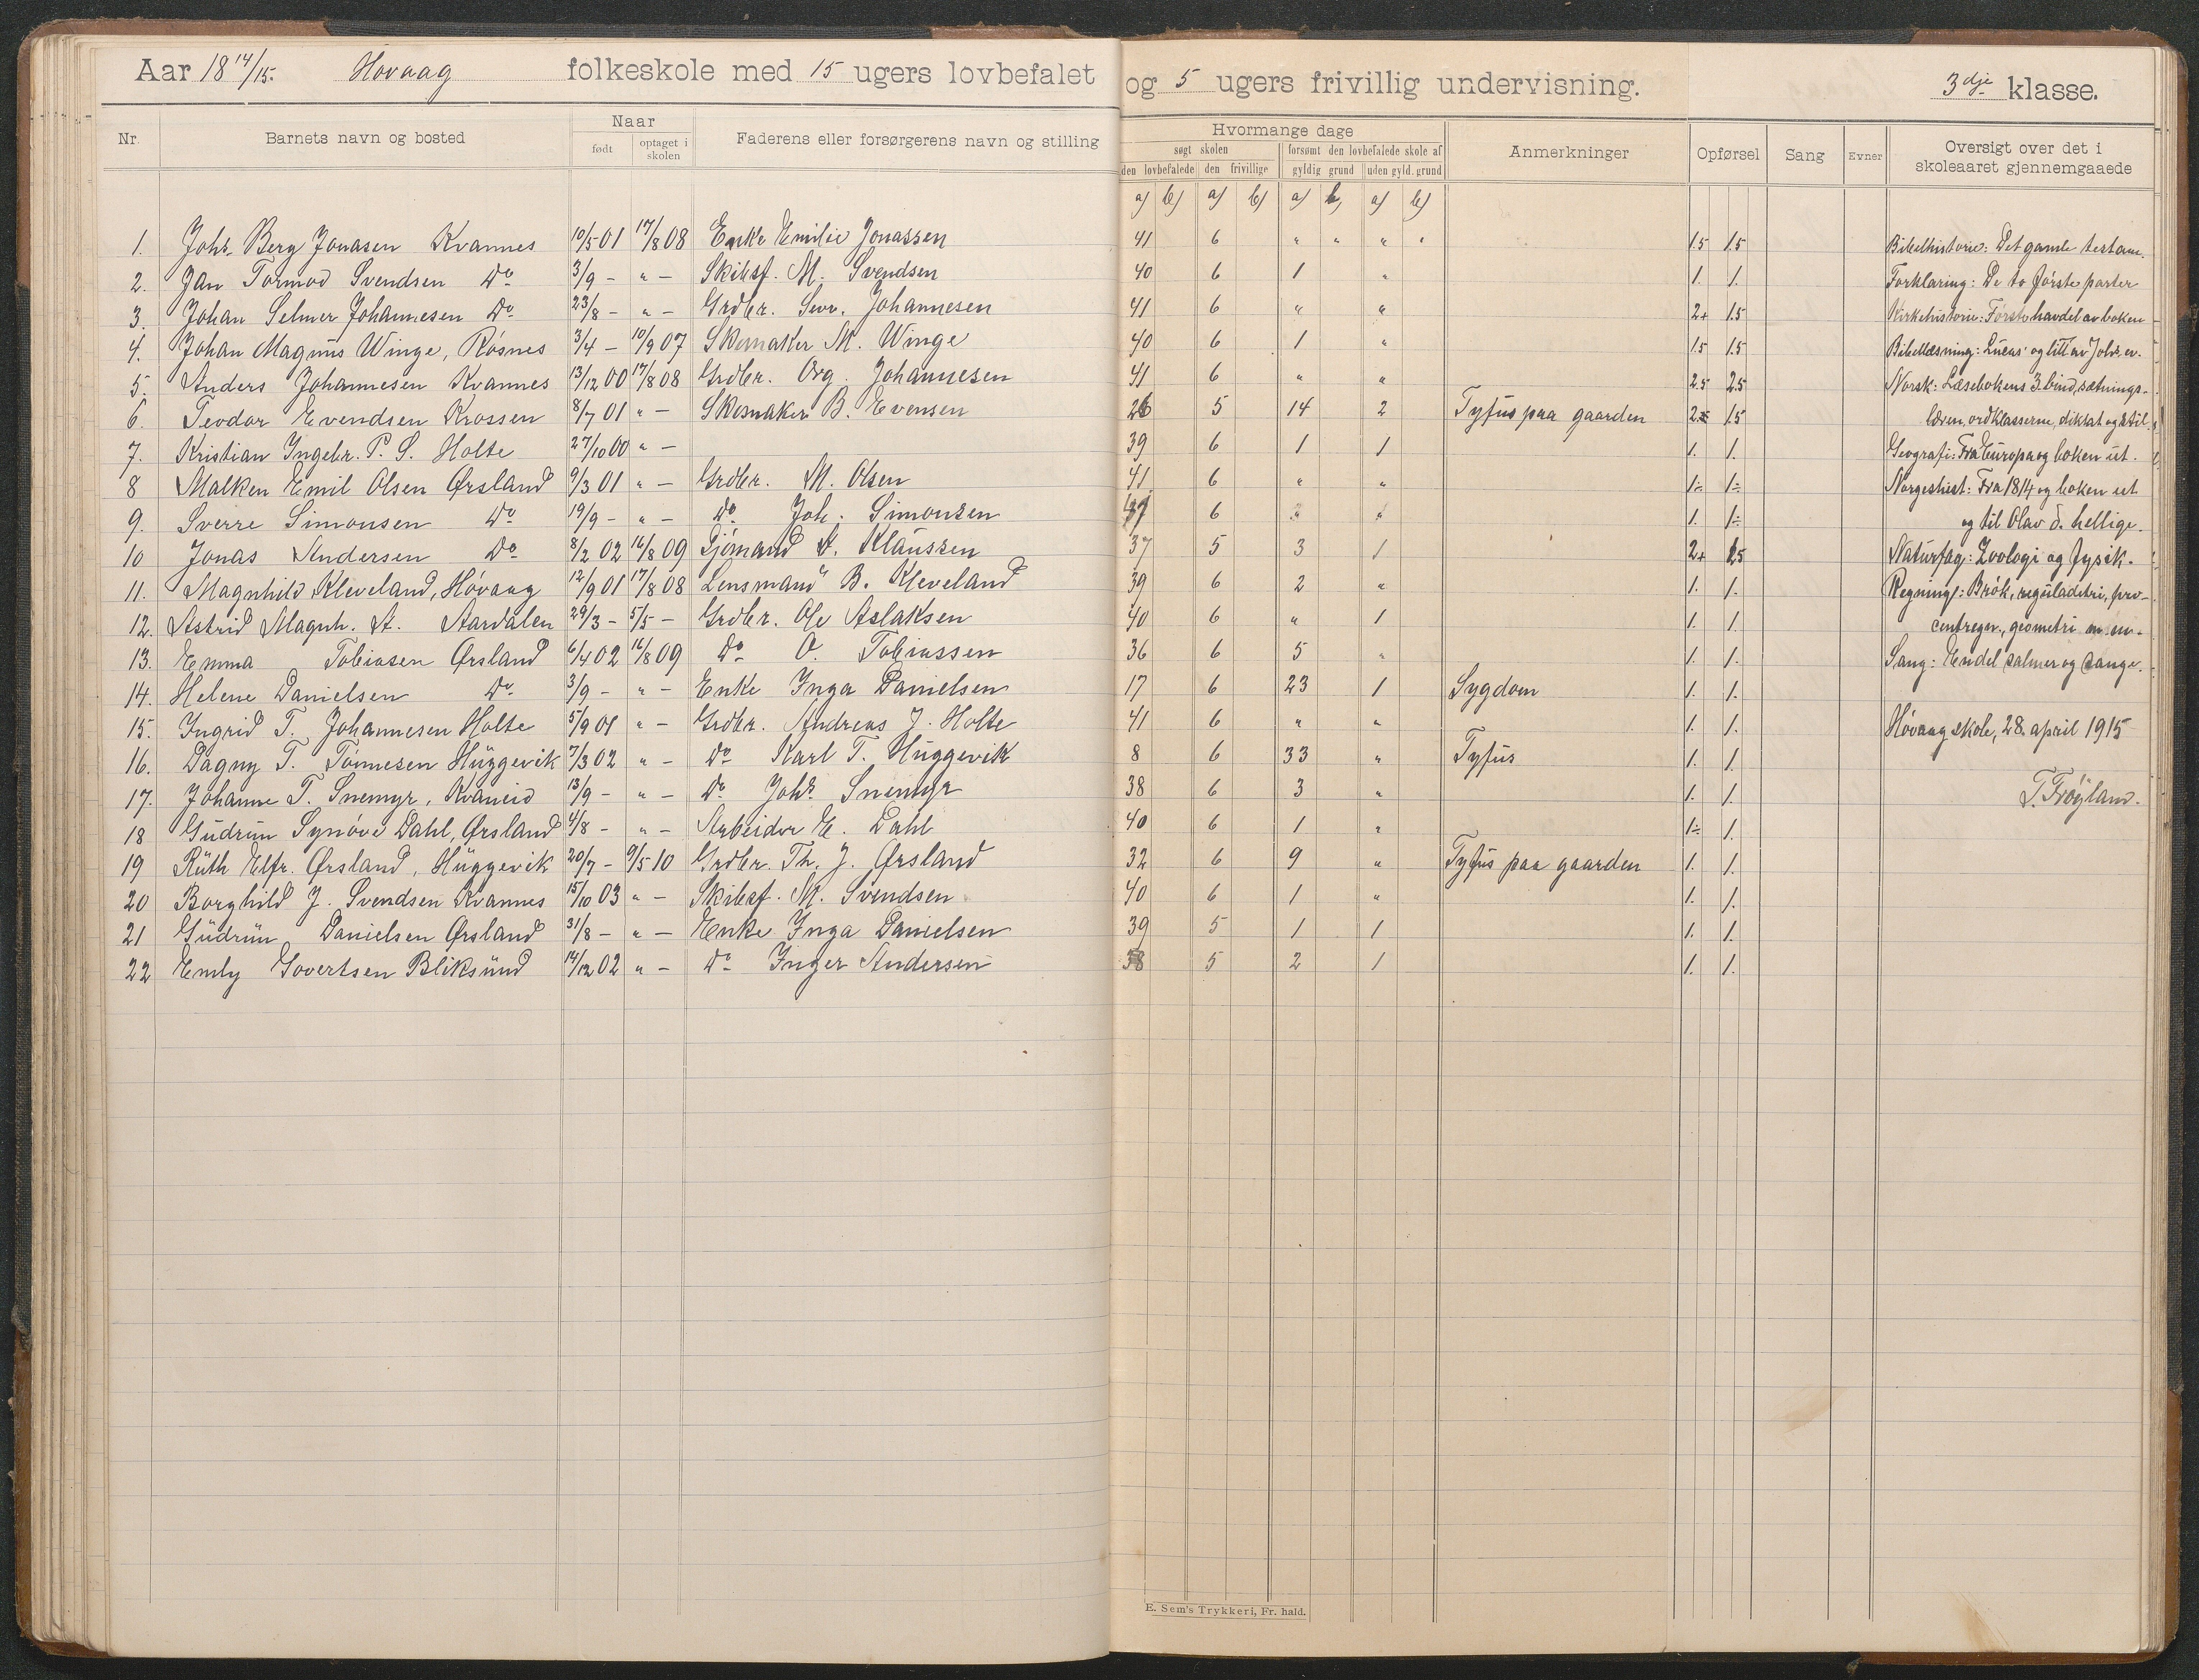 Aar 18 14/15. Hovaag folkeskole med 15 ugers lovbefalet og 5 ugers frivillig undervisning. 3dje klasse.
Nr. Barnets navn og bosted Naar født optaget i skolen Faderens eller forsørgerens navn og stilling Hvormange dage søgt skolen den lovbefalede den frivillige forsømt den lovbefalede skole af gyldig grund uden gyld. grund Anmerkninger Opførsel Sang Evner Oversigt over det i skoleaaret gjennemgaaede
a) b) a) b) a) b) a) b)
1. Johs. Berg Jonasen Kvannes 10/5 01 17/8 08 Enke Emilie Jonassen 41 6 " " " " 1.5 1.5 Bibelhistorie: Det gamle testam.
2. Jan Tormod Svendsen Do 3/9 – " – Skibsf. M. Svendsen 40 6 1 " 1. 1. Forklaring: De to første parter
3. Johan Selmer Johannesen Do 23/8 – " – Grdbr. Sev. Johannesen 41 6 " " 2+ 1.5 Kirkehistorie: Første havdel av boken
4. Johan Magnus Winge, Røsnes 3/4 – 10/9 07 Skomaker M. Winge 40 6 1 " 1.5 1.5 Bibellæsning: Lucas og litt av Johs. ev.
5. Anders Johannesen Kvannes 13/12 00 17/8 08 Grdbr. Org. Johannesen 41 6 " " 2.5 2.5 Norsk: Læsebokens 3. bind, sætnings-
6. Teodor Evendsen Krossen 8/7 01 " – Skomaker B. Evensen 26 5 14 2 Tyfus paa gaarden 1.5 læren, ordklasserne, diktat og stil.
7. Kristian Ingebr. P. S. Holte 27/10 00 " – 39 6 1 1 1. 1. Geografi: Fra Europa og boken ut.
8 Malken Emil Olsen Ørsland 9/3 01 " – Grdbr. M. Olsen 41 6 " " 1÷ 1÷ Norgeshist: Fra 1814 og boken ut
9. Sverre Simonsen Do 19/9 – " – Do Joh. Simonsen 6 1. 1÷ og til Olav d. hellige.
10 Jonas Andersen Do 8/2 02 16/8 09 Sjømand A. Klaussen 37 5 3 1 2+ 1.5 Naturfag: Zoologi og fysik.
11. Magnhild Kleveland, Høvaag 12/9 01 17/8 08 Lensmand B. Kleveland 39 6 2 " 1. 1. Regning: Brøk, reguladetri, pro-
12. Astrid Magnh. A. Aardalen 29/3 – 5/5 – Grdbr. Ole Aslaksen 40 6 " 1 1. 1. centregn., geometri m. m.
13. Emma Tobiasen Ørsland 6/4 02 16/8 09 Do O. Tobiassen 36 6 5 " 1. 1. Sang: Endel salmer og sange.
14. Helene Danielsen Do 3/9 – " – Enke Inga Danielsen 17 6 23 1 Sygdom 1. 1.
15. Ingrid T. Johannesen Holte 5/9 01 " – Grdbr. Andreas J. Holte 41 6 " " 1. 1. Høvaag skole, 28. april 1915
16. Dagny T. Tønnesen Huggevik 7/3 02 " – Do Karl T. Huggevik 8 6 33 " Tyfus 1. 1.
17. Johanne T. Snemyr, Kvaneid 13/9 – " – Do Johs. Snemyr 38 6 3 " 1. 1. T. Frøyland.
18 Gudrun Synøve Dahl, Ørsland 4/8 – " – Arbeider E. Dahl 40 6 1 " 1÷ 1.
19 Ruth Elfr. Ørsland, Huggevik 20/7 – 9/5 10 Grdbr. Th. J. Ørsland 32 6 9 " Tyfus paa gaarden 1. 1.
20 Borghild J. Svendsen Kvannes 15/10 03 " – Skibsf. M. Svendsen 40 6 1 " 1. 1.
21 Gudrun Danielsen Ørsland 31/8 – " – Enke Inga Danielsen 39 5 1 1 1. 1.
22 Emly Govertsen Bliksund 14/12 02 " – Do Inger Andersen 38 5 2 1 1. 1.
E. Sem's Trykkeri, Fr. hald.